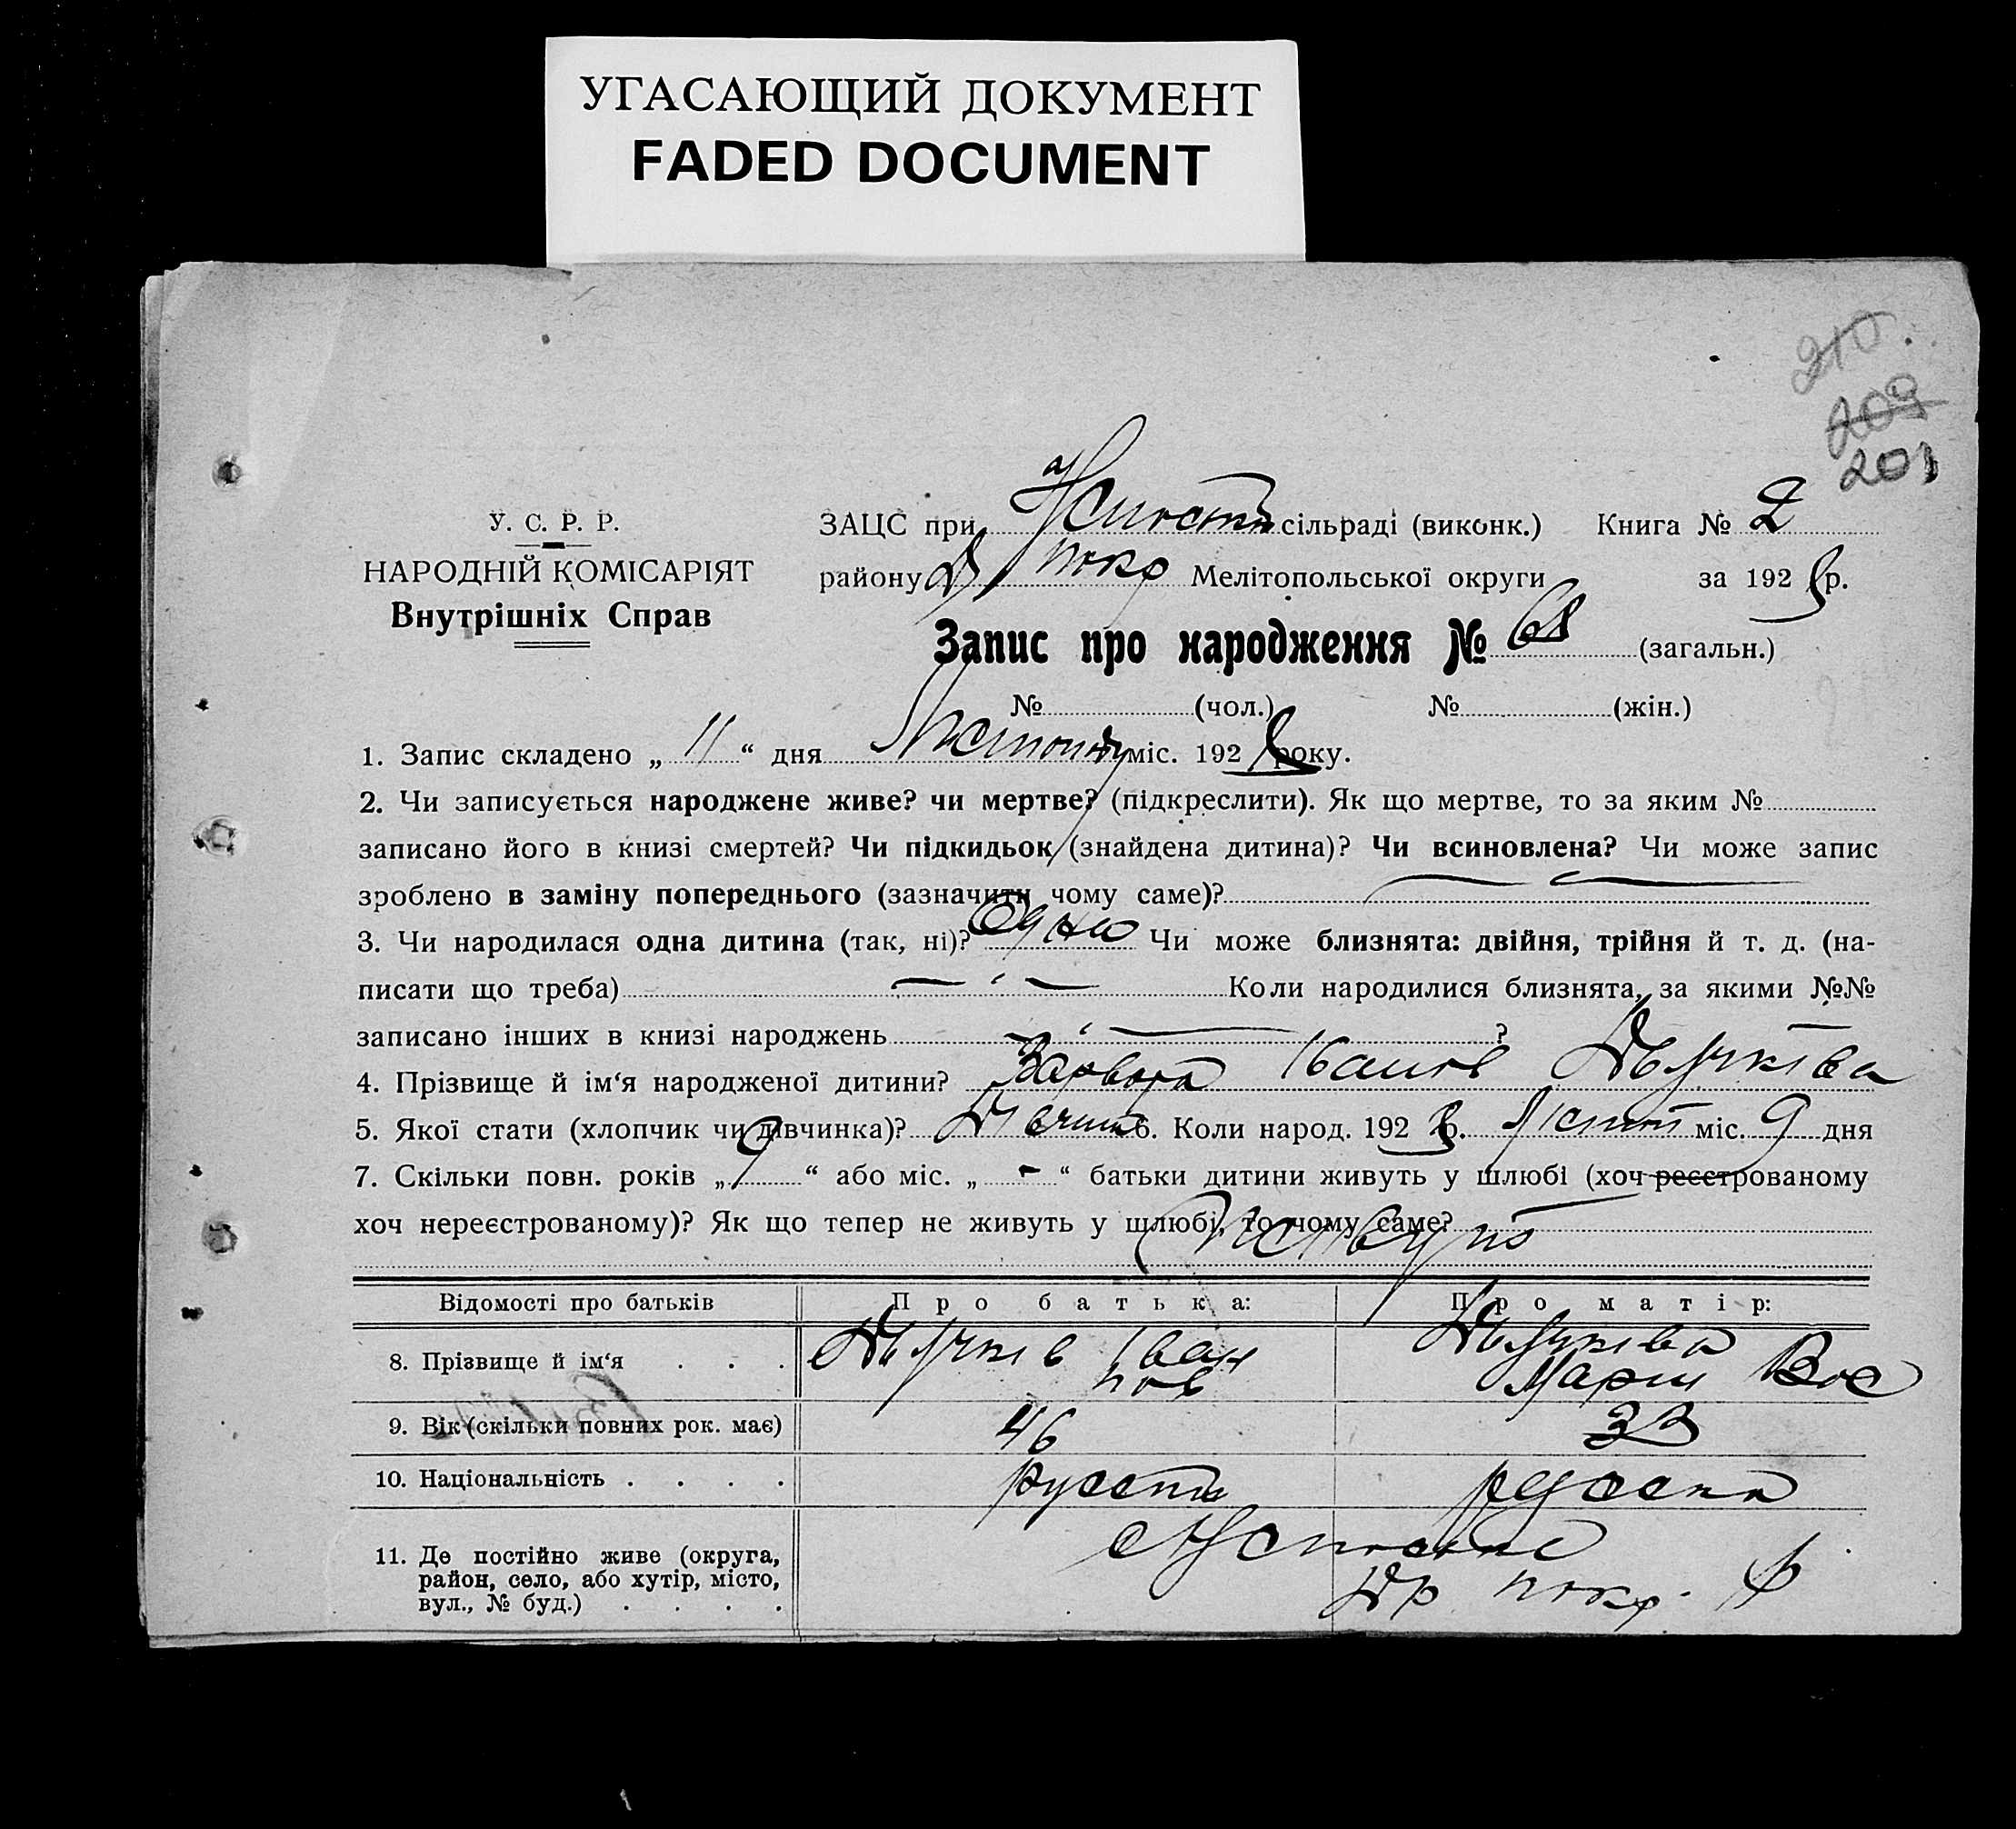 УГАСАЮЩИЙ ДОКУМЕНТ
FADED DOCUMENT
210.
209
201
У. С. Р. Р.
НАРОДНІЙ КОМІСАРІЯТ
Внутрішніх Справ
ЗАЦС при сільраді (виконк.) Книга № 2
району покр Мелітопольської округи за 1928 р.
Запис про народження № 68 (загальн.)
№ (чол.) № (жін.)
1. Запис складено „ 11 “ дня міс. 1928 року.
2. Чи записується народжене живе? чи мертве? (підкреслити). Як що мертве, то за яким №
записано його в книзі смертей? Чи підкидьок (знайдена дитина)? Чи всиновлена? Чи може запис
зроблено в заміну попереднього (зазначити чому саме)?
3. Чи народилася одна дитина (так, ні)? Одна Чи може близнята: двійня, трійня й т. д. (на-
писати що треба) Коли народилися близнята, за якими №№
записано інших в книзі народжень ?
4. Прізвище й ім‘я народженої дитини? Варвара Іванов
5. Якої стати (хлопчик чи дівчинка)? Дівчин 6. Коли народ. 1928 р. Листоп міс. 9 дня
7. Скільки повн. років „ 9 “ або міс. „ - “ батьки дитини живуть у шлюбі (хоч реєстрованому
хоч нереєстрованому)? Як що тепер не живуть у шлюбі, то чому саме?
Відомості про батьків Про батька: Про матір:
8. Прізвище й ім‘я . . . Іван Марія Вас
9. Вік (скільки повних рок. має) 46 33
10. Національність . . . . руский руска
11. Де постійно живе (округа,
район, село, або хутір, місто,
вул., № буд.) . . . . покр.